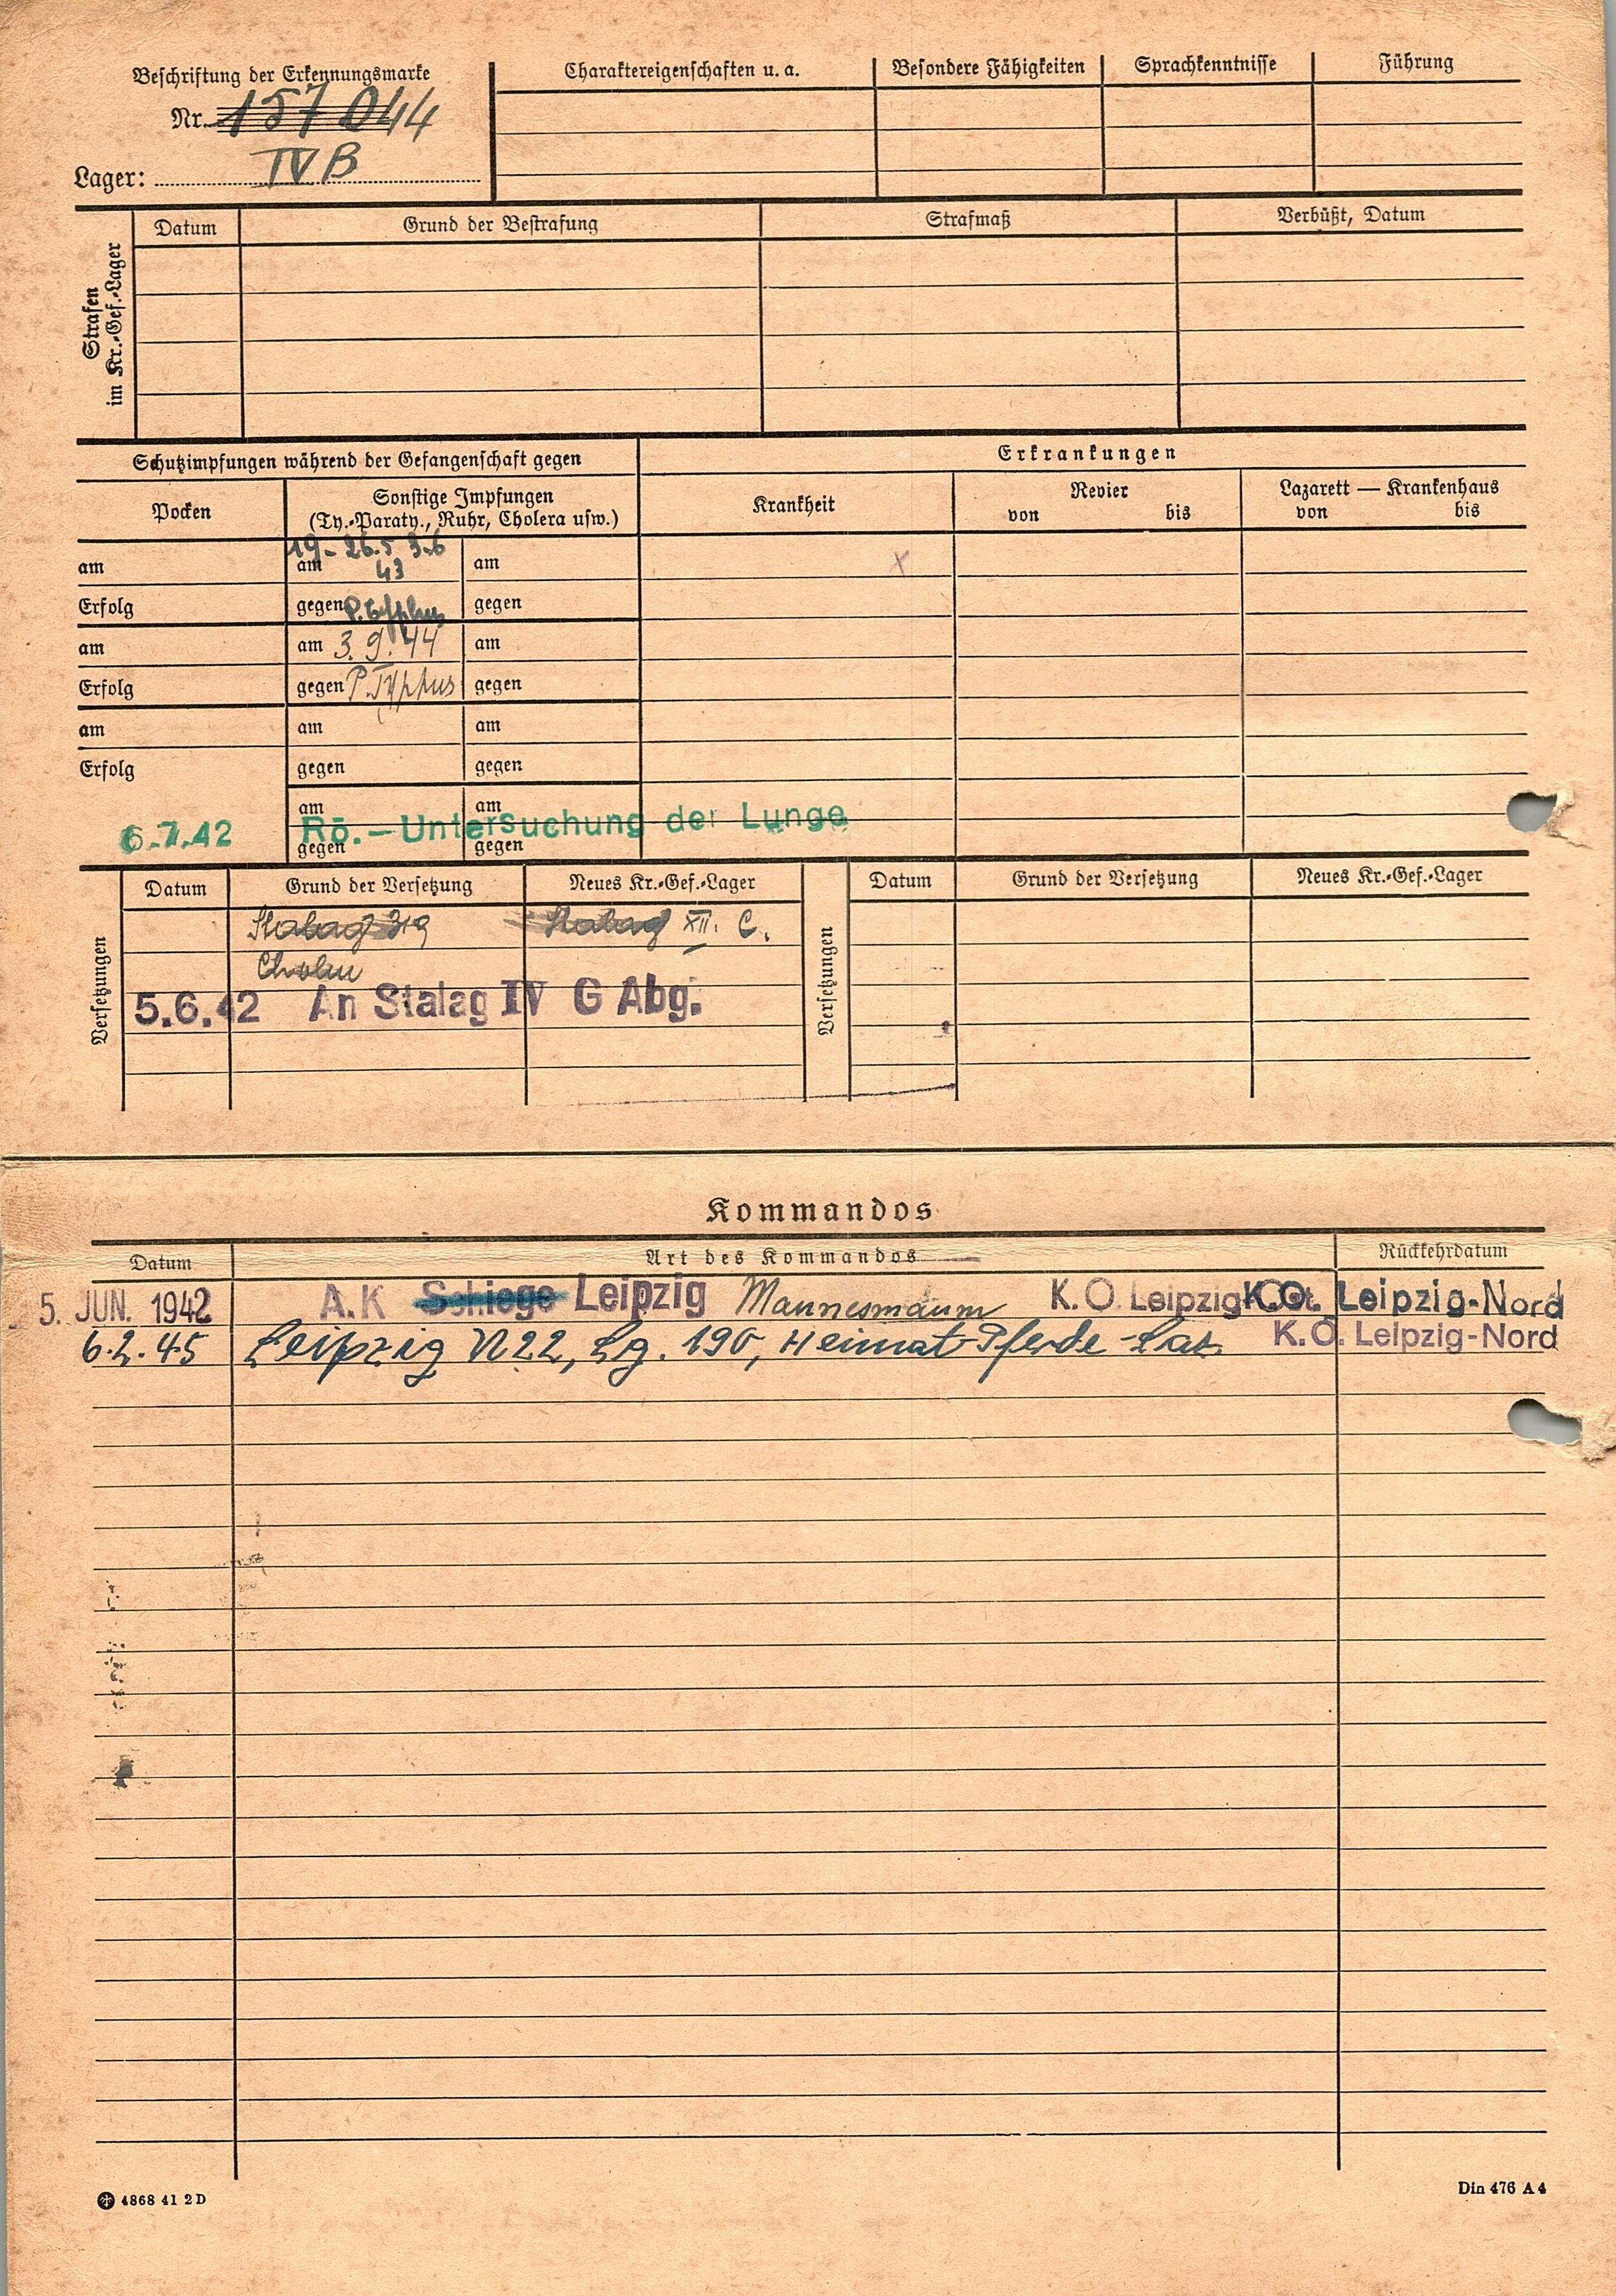 Beschriftung der Erkennungsmarke
Nr. 157044
Lager: IV B
Charaktereigenschaften u. a.
Besondere Fähigkeiten
Sprachkenntnisse
Führung
Strafen
im Kr.-Gef.-Lager
Datum
Grund der Bestrafung
Strafmaß
Verbüßt, Datum
Schutzimpfungen während der Gefangenschaft gegen
Erkrankungen
Pocken
Sonstige Impfungen
(Ty.-Paraty., Ruhr, Cholera usw.)
Krankheit
Revier
von bis
Lazarett — Krankenhaus
von bis
19- 26.5 3.6
am am 43 am
x
Erfolg gegen P. Typhus gegen
am am 3.9.44 am
Erfolg gegen P. Typhus gegen
am am am
Erfolg gegen gegen
am am
6.7.42 Rö.-Untersuchung der Lunge
gegen gegen
Versetzungen
Datum
Grund der Versetzung
Neues Kr.-Gef.-Lager
Versetzungen
Datum
Grund der Versetzung
Neues Kr.-Gef.-Lager
Stalag 319 Stalag XII. C.
Cholm
5.6.42 An Stalag IV G Abg.
Kommandos
Datum
Art des Kommandos
Rückkehrdatum
5. JUN. 1942 A.K Schiege Leipzig Mannesmann K.O. Leipzig K.O. Leipzig-Nord
6.2.45 Leipzig N22, Lg. 190, Heimat-Pferde-Laz. K.O. Leipzig-Nord
4868 41 2 D
Din 476 A 4